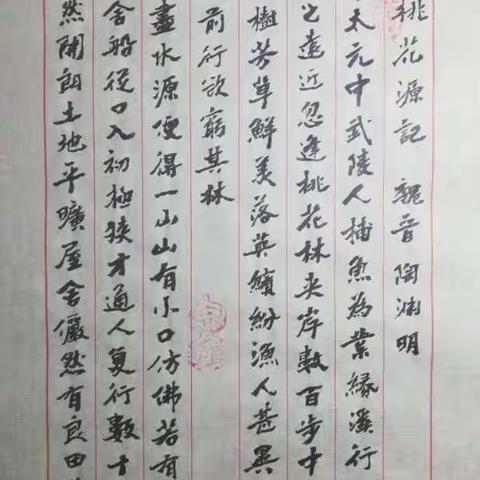 桃花源記 魏晋 陶渊明
太元中武陵人捕魚為業緣溪行
之遠近忽逢桃花林夾岸數百步中
樹芳草鮮美落英繽紛漁人甚異
前行欲窮其林
盡水源便得一山山有小口仿佛若有
舍船從口入初極狹才通人复行數十
然開朗土地平曠屋舍儼然有良田